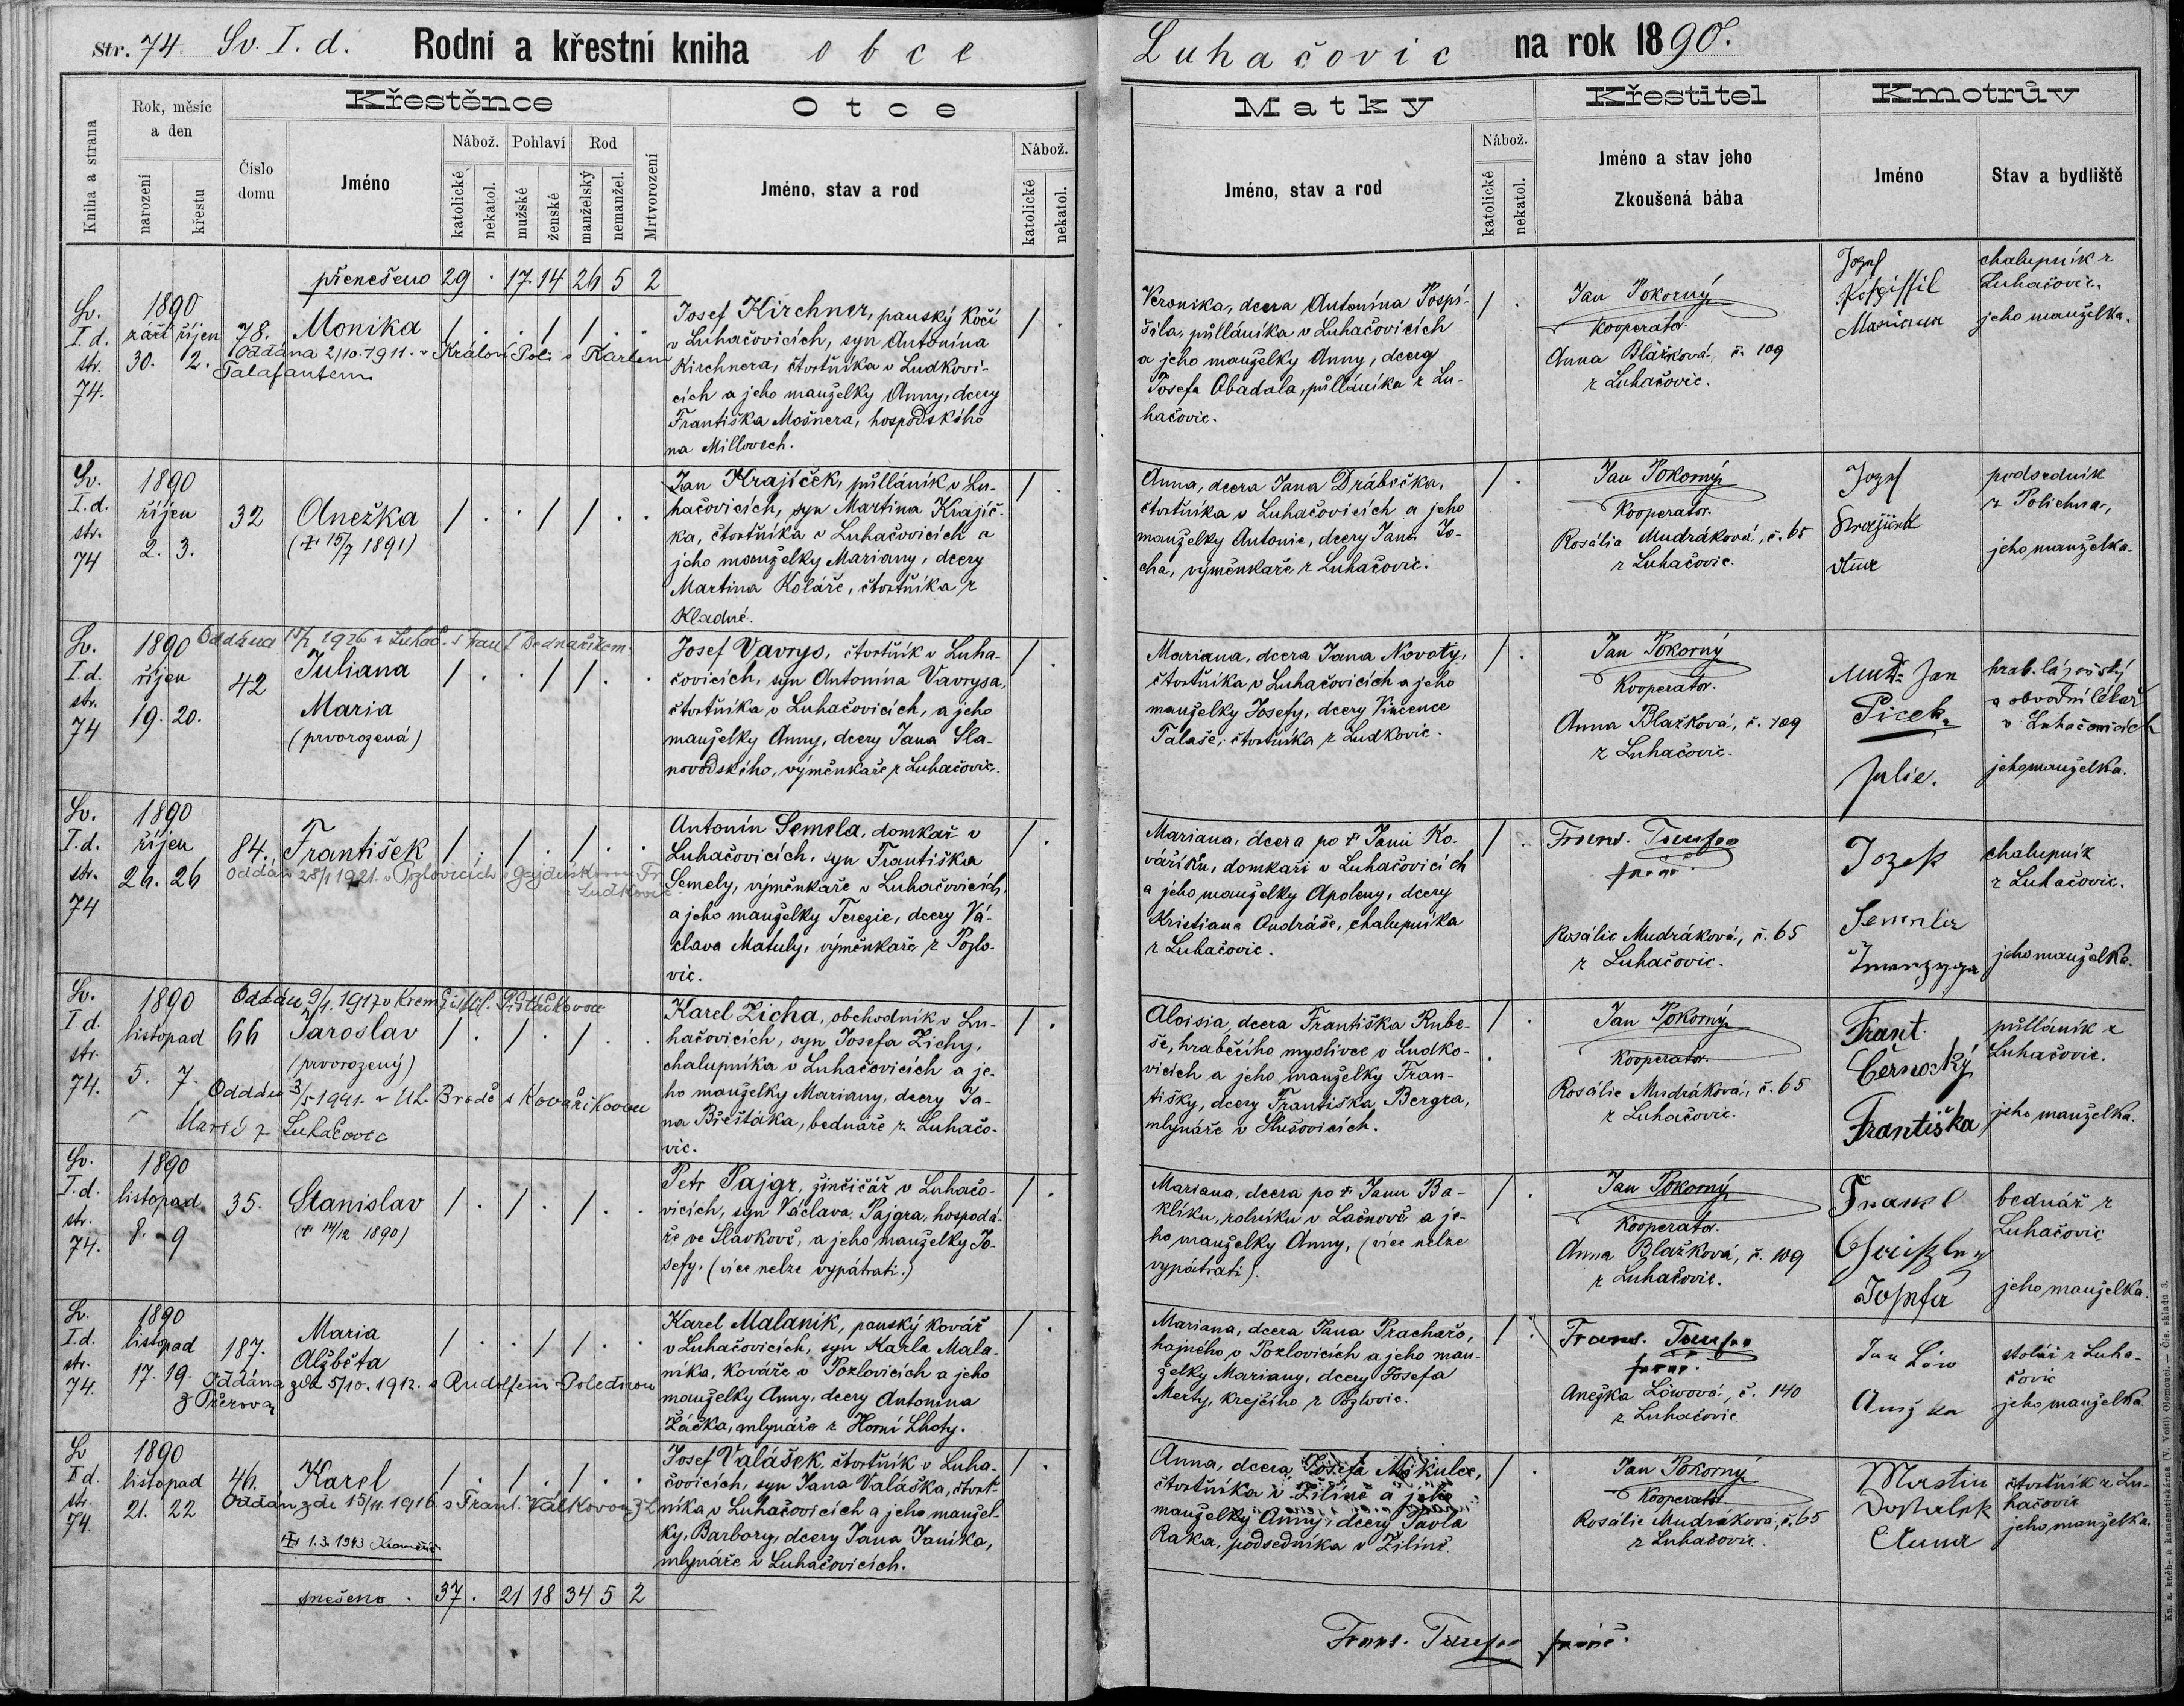 Str. 74 Sv. I. d. Rodní a křestní kniha obce Luhačovic na rok 1890.
Kniha a strana
Rok, měsíc a den
narození
křestu
Číslo domu
Křestěnce
Jméno
Nábož.
katolické
nekatol.
Pohlaví
mužské
ženské
Rod
manželský
nemanžel.
Mrtvorození
Otce
Jméno, stav a rod
Nábož.
katolické
nekatol.
Matky
Jméno, stav a rod
Nábož.
katolické
nekatol.
Křestitel
Jméno a stav jeho
Zkoušená bába
Kmotrův
Jméno
Stav a bydliště
přenešeno 29 . 17 14 26 5 2
Sv. I. d. str. 74.
1890
září říjen
30. 2.
78. Monika / . . / / . .
Oddána 2/10. 1911. v Králově Poli s Karlem
Talafantem
Josef Kirchner, panský kočí
v Luhačovicích, syn Antonína
Kirchnera, čtvrtníka v Ludkovi-
cích a jeho manželky Anny, dcery
Františka Mošnera, hospodského
na Millovech.
/ .
Veronika, dcera Antonína Pospí-
šila, půlláníka v Luhačovicích
a jeho manželky Anny, dcery
Josefa Obadala, půlláníka z Lu-
hačovic.
/ .
Jan Pokorný
Kooperator.
Anna Blažková, č. 109
z Luhačovic.
Jozef
Pospissil
Marianna
chalupník z
Luhačovic.
jeho manželka.
Sv. I. d. str. 74
1890
říjen
2. 3.
32 Anežka / . . / / . .
(✝ 15/7 1891)
Jan Krajíček, půlláník v Lu-
hačovicích, syn Martina Krajíč-
ka, čtvrtníka v Luhačovicích a
jeho manželky Mariany, dcery
Martina Koláře, čtvrtníka z
Kladné.
/ .
Anna, dcera Jana Drábečka,
čtvrtníka v Luhačovicích a jeho
manželky Antonie, dcery Jana Jo-
cha, výměnkaře z Luhačovic.
/ .
Jan Pokorný
Kooperator.
Rosálie Mudráková, č. 65
z Luhačovic.
Jozef
Krajiček
Anna
podsedník
z Polichna,
jeho manželka.
Sv. I. d. str. 74
1890
říjen
19. 20.
Oddána 1926 v Luhač. s Bednaříkem.
42 Juliana / . . / / . .
Maria
(prvorozená)
Josef Vavrys, čtvrtník v Luha-
čovicích, syn Antonína Vavrysa,
čtvrtníka v Luhačovicích, a jeho
manželky Anny, dcery Jana Sla-
novodského, výměnkaře z Luhačovic.
/ .
Mariana, dcera Jana Novoty,
čtvrtníka v Luhačovicích a jeho
manželky Josefy, dcery Vincence
Talaše, čtvrtníka z Ludkovic.
/ .
Jan Pokorný
Kooperator.
Anna Blažková, č. 109
z Luhačovic.
MUDr. Jan
Picek
Julie.
hrab. lázeňský
a obvodní lékař
v Luhačovicích
jeho manželka.
Sv. I. d. str. 74
1890
říjen
26. 26
84. František / . / . / . .
Oddán 25/1 1921. v Pozlovicích s Gajduškovou Fr.
z Ludkovic
Antonín Semela, domkař v
Luhačovicích, syn Františka
Semely, výměnkaře v Luhačovicích,
a jeho manželky Terezie, dcery Vá-
clava Matuly, výměnkaře z Pozlo-
vic.
/ .
Mariana, dcera po ✝ Janu Ko-
váříkovi, domkaři v Luhačovicích
a jeho manželky Apoleny, dcery
Kristiana Ondráše, chalupníka
z Luhačovic.
/ .
farář.
Rosálie Mudráková, č. 65
z Luhačovic.
Jozef
Semela
chalupník
z Luhačovic.
jeho manželka.
Sv. I. d. str. 74.
1890
listopad
5. 7.
Oddán 9/1. 1917 v Kroměříži
66 Jaroslav / . / . / . .
(prvorozený)
Oddán 3/5 1941. v Uh. Brodě s Kovaříkovou
Marií z Luhačovic
Karel Zicha, obchodník v Lu-
hačovicích, syn Josefa Zichy,
chalupníka v Luhačovicích a je-
ho manželky Mariany, dcery Ja-
na Břešťáka, bednáře z Luhačo-
vic.
/ .
Aloisia, dcera Františka Rube-
še, hraběcího myslivce v Ludko-
vicích a jeho manželky Fran-
tišky, dcery Františka Bergra,
mlynáře v Slušovicích.
/ .
Jan Pokorný
Kooperator.
Rosálie Mudráková, č. 65
z Luhačovic.
Frant.
Černocký
Františka
půlláník z
Luhačovic.
jeho manželka.
Sv. I. d. str. 74.
1890
listopad
8. 9
35. Stanislav / . / . / . .
(✝ 14/12 1890)
Petr Pajgr, žinčičář v Luhačo-
vicích, syn Václava Pajgra, hospodá-
ře ve Slavkově, a jeho manželky Jo-
sefy. (více nelze vypátrati.)
/ .
Mariana, dcera po ✝ Janu Ba-
klíku, rolníku v Lačnově a je-
ho manželky Anny, (více nelze
vypátrati).
/ .
Jan Pokorný
Kooperator.
Anna Blažková, č. 109
z Luhačovic.
Josefa
bednář z
Luhačovic
jeho manželka.
Sv. I. d. str. 74.
1890
listopad
17. 19.
187. Maria / . . / / . .
Alžběta
Oddána zde 5/10. 1912. s Rudolfem Poledňou
z Přerova
Karel Malaník, panský kovář
v Luhačovicích, syn Karla Mala-
níka, kováře v Pozlovicích a jeho
manželky Anny, dcery Antonína
Žáčka, mlynáře z Horní Lhoty.
/ .
Mariana, dcera Jana Prachaře,
hajného v Pozlovicích a jeho man-
želky Mariany, dcery Josefa
Merty, krejčího z Pozlovic.
/ .
farář.
Anežka Löwová, č. 140
z Luhačovic
Jan Löw
Anežka
stolář z Luha-
čovic
jeho manželka.
Sv. I. d. str. 74.
1890
listopad
21. 22
46. Karel / . / . / . .
Oddán zde 15/11. 1916. s Frant. Válkovou z L.
✝ 1.3. 1943 Kroměříž
Josef Valášek, čtvrtník v Luha-
čovicích, syn Jana Valáška, čtvrt-
níka v Luhačovicích a jeho manžel-
ky, Barbory, dcery Jana Janíka,
mlynáře v Luhačovicích.
/ .
Anna, dcera Josefa Mikulce,
čtvrtníka v Žilině a jeho
manželky Anny, dcery Pavla
Raka, podsedníka v Žilině.
/ .
Jan Pokorný
Kooperator.
Rosálie Mudráková, č. 65
z Luhačovic.
Martin
Dostalek
Anna
čtvrtník z Lu-
hačovic
jeho manželka.
snešeno . 37 . 21 18 34 5 2
farář.
Kn. a. kněh- a kamenotiskárna (V. Voitl) Olomouci. — Čís. skladu 3.